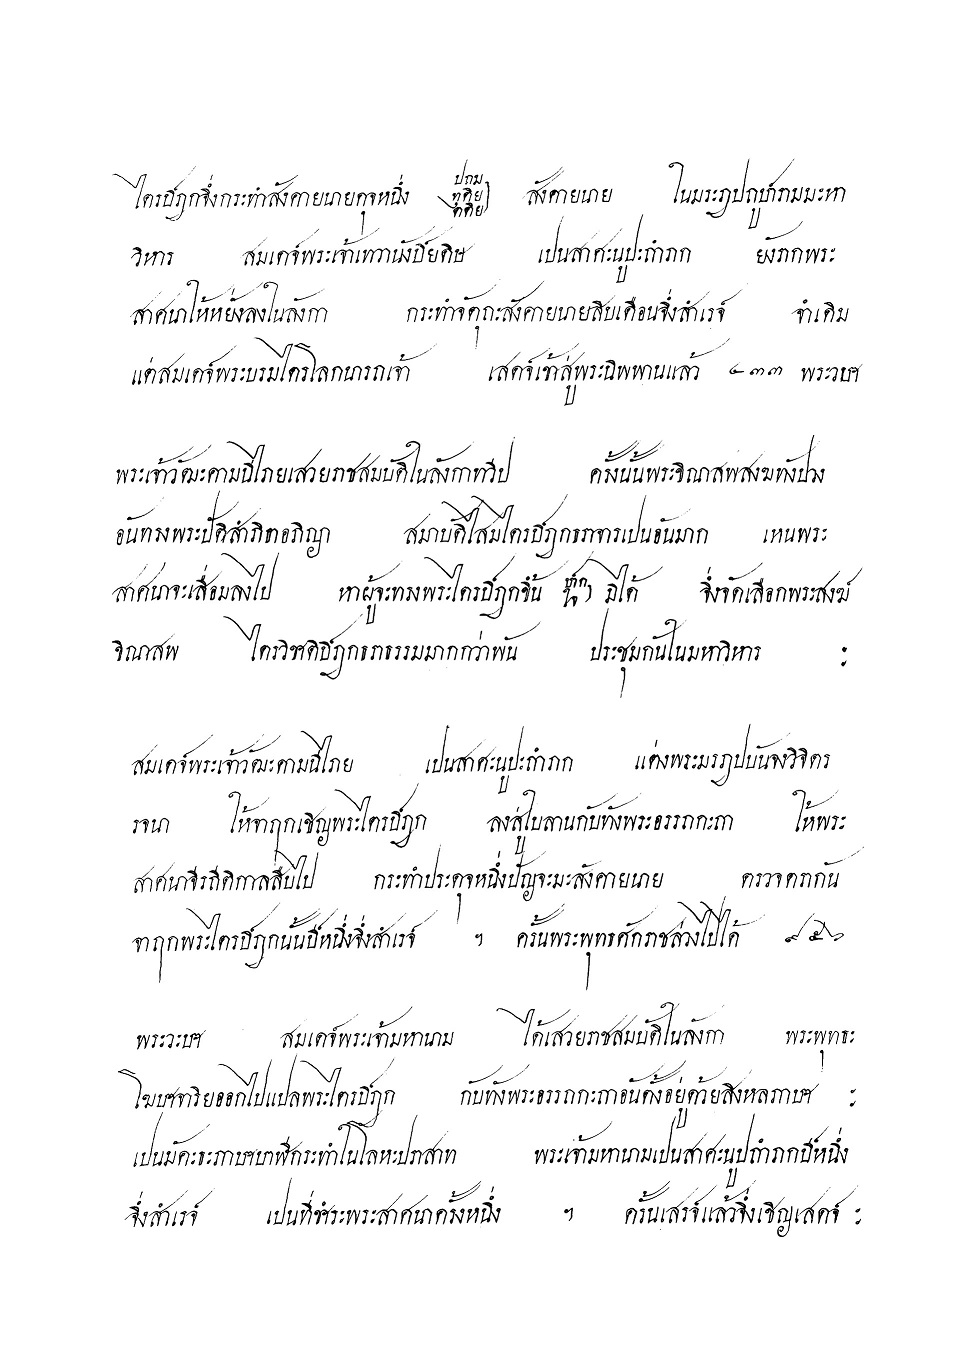 ไตรปิฎกจึ่งกระทำสังคายนายดุจหนึ่ง ปถม ทุติย ตติย สังคายนาย ในมรฎปถูปารามมะหา
วิหาร สมเดจ์พระเจ้าเทวานังปิยดิษ เปนสาศะนูปะถำภก ยังรกพระ
สาศนาให้หยั่งลงในลังกา กระทำจัตุถะสังคายนายสิบเดือนจึ่งสำเรจ์ จำเดิม
แต่สมเดจ์พระบรมไตรโลกนารถเจ้า เสดจ์เข้าสู่พระนิพพานแล้ว ๔๓๓ พระวบษ
พระเจ้าวัฒะคามนีไภยเสวยราชสมบัติในลังกาทวีป ครั้งนั้นพระขิณาสพสงฆทังปวง
อันทรงพระปติสำภิทาอภิญา สมาบัติโสมไตรปิฎกธราจารเปนอันมาก เหนพระ
สาศนาจะเสื่อมลงไป หาผู้จะทรงพระไตรปิฎกขึ้น มิได้ จึ่งจัดเลือกพระสงฆ์
ขิณาสพ ไตรวิชาติปิฎกธราธรรมมากกว่าพัน ประชุมกันในมหาวิหาร ะ
สมเดจ์พระเจ้าวัฒะคามนีไภย เปนสาศะนูปะถำภก แต่งพระมรฎปบันจงวิจิตร
รจนา ให้จาฤกเชิญพระไตรปิฎก ลงสู่ใบลานกับทังพระอรรถกะถา ให้พระ
สาศนาจีรถีติกาลสืบไป กระทำประดุจหนึ่งปัญจะมะสังคายนาย ตรวจตรากัน
จาฤกพระไตรปิฎกนั้นปีหนึ่งจึ่งสำเรจ์ ฯ ครั้นพระพุทธศักราชล่วงไปได้ ๙๕๖
พระวะบษ สมเดจ์พระเจ้ามหานาม ได้เสวยราชสมบัติในลังกา พระพุทธะ
โฆษาจาริยออกไปแปลพระไตรปิฎก กับทังพระอรรถกะถาอันตั้งอยู่ด้วยสิงหลภาษ ะ
เปนมัคะธะภาษาบาฬีกระทำในโลหะปราสาท พระเจ้ามหานามเปนสาศะนูปถำภกปีหนึ่ง
จึ่งสำเรจ์ เปนที่ชำระพระสาศนาครั้งหนึ่ง ฯ ครั้นเสรจ์แล้วจึ่งเชิญเสดจ์ ะ